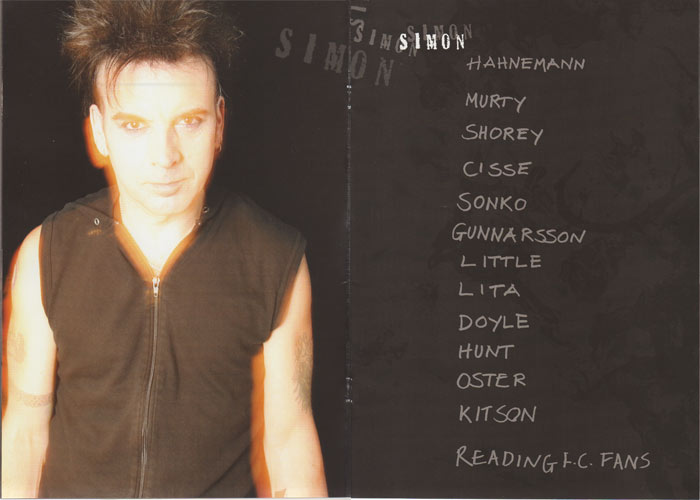 SIMON
SIMON
SIMON
SIMON
HAHNEMANN
MURTY
SHOREY
CISSE
SONKO
GUNNARSSON
LITTLE
LITA
DOYLE
HUNT
OSTER
KITSON
READING F.C. FANS